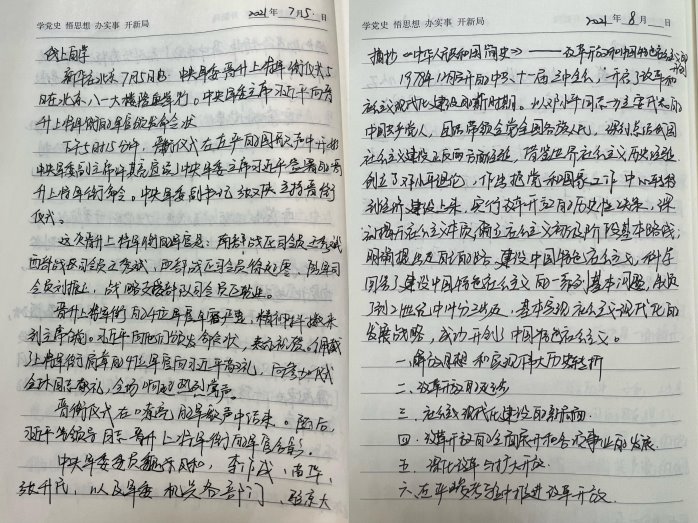 学党史 悟思想 办实事 开新局
2021 年 7 月 5 日
线上自学
新华社北京7月5日电 中央军委晋升上将军衔仪式5
日在北京八一大楼隆重举行。中央军委主席习近平向晋
升上将军衔的军官颁发命令状
下午5时15分许，晋衔仪式在庄严的国歌声中开始
中央军委副主席许其亮宣读了中央军委主席习近平签署的晋
升上将军衔命令。中央军委副书记张又侠主持晋衔
仪式。
这次晋升上将军衔的军官是：南部战区司令员王秀斌
西部战区司令员徐起零，陆军司
令员刘振立，战略支援部队司令员巨乾生。
晋升上将军衔的4位军官军容严整，精神抖擞来
到主席台前。习近平向他们颁发命令状，表示祝贺。佩戴
上将军衔肩章的4位军官向习近平敬礼，向参加仪式
全体同志敬礼，全场响起热烈掌声。
晋衔仪式在嘹亮的军歌声中结束。随后，
习近平等领导同志晋升上将军衔的军官合影。
中央军委委员魏凤和、李作成、苗华、
张升民，以及军委机关各部门、驻京大
学党史 悟思想 办实事 开新局
2021 年 8 月 日
摘抄《中华人民共和国简史》——改革开放和中国特色社会主义
1978年12月召开的中共十一届三中全会，开启了改革和
社会主义现代化建设的新时期。以邓小平同志为主要代表的
中国共产党人，团结带领全党全国各族人民，深刻总结我国
社会主义建设正反两方面经验，借鉴世界社会主义历史经验
创立了邓小平理论，作出把党和国家工作中心转移
到经济建设上来，实行改革开放的历史性决策，深
刻揭示社会主义本质，确立社会主义初级阶段基本路线，
明确提出走自己的路、建设中国特色社会主义，科学
回答了建设中国特色社会主义的一系列基本问题，制定
了到21世纪中叶分三步走、基本实现社会主义现代化的
发展战略，成功开创了中国特色社会主义。
一、解放思想和实现伟大历史转折
二、改革开放的起步
三、社会主义现代化建设的新局面
四、改革开放的全面展开和各项事业的发展
五、深化改革与扩大开放
六、在严峻考验中推进改革开放